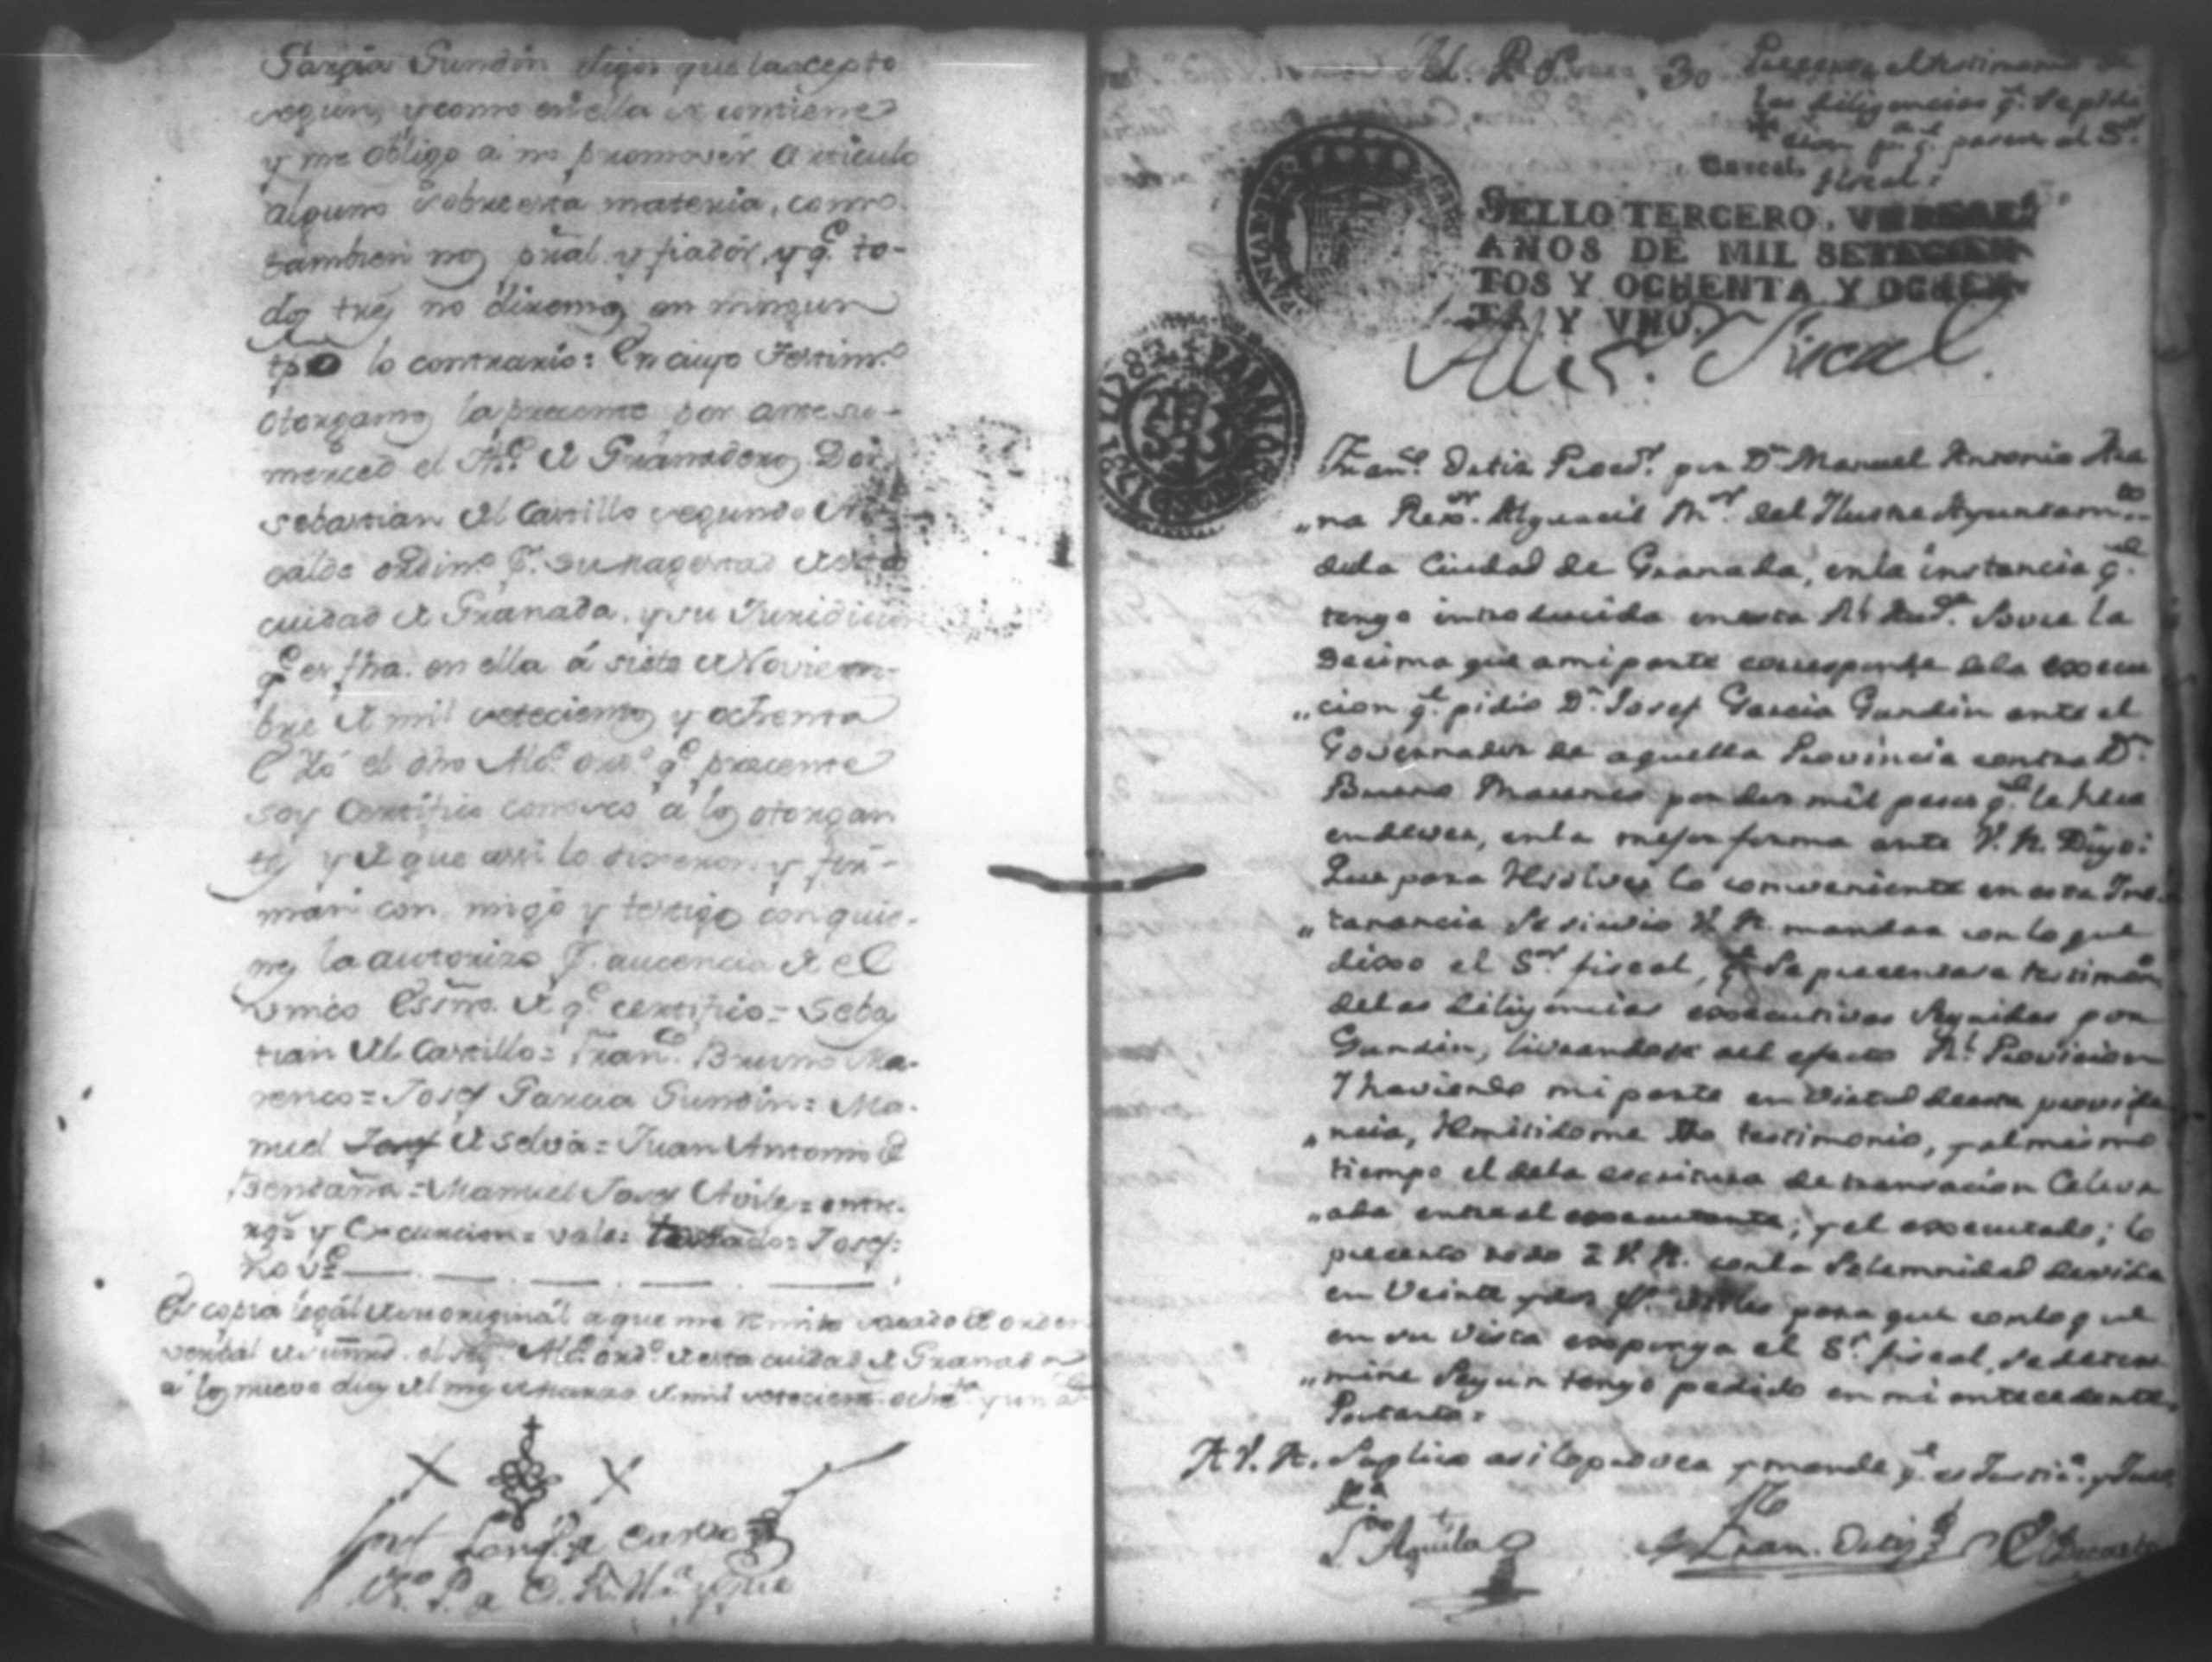 Garcia Gundin digo: que la acepto
segun, y como en ella se contiene
y me obligo a no promover articulo
alguno sobre esta materia, como
tambien nos prãl. y fiador, y q.e to-
dos tres no diremos en ningun
tpo lo contrario: En cuyo testim.o
otorgamos la precente por ante su
merced el The. de Granaderos Don
Sebastian del Castillo segundo Al-
calde ordin.o p.r su magestad de esta
ciudad de Granada, y su Juridicion
q.e es fha. en ella á siete de Noviem-
bre de mil setecientos y ochenta
E Yó el dho Alc.e ord.o q.e precente
soy Certifico conosco á los otorgan
tes y de que assi lo dixeron y fir-
man con migo y testigos con quie-
nes la autorizo p.r aucencia de el
unico Essno. de q.e certifico = Sebas
tian del Castillo = Fran.co Bruno Ma-
renco = Josef Garcia Gundin = Ma-
nuel Josef de Selva = Juan Antonio de
Bendaña = Manuel Josef Aviles = entre-
rgs = y Excucion = vale = testado = Josef =
no v.e
Es copia legál de su originál a que me remito sacado de orden
verbal de su mrd. el sor. Alc.e ord.o de esta ciudad de Granada
á los nueve dias del mes de marzo de mil setecient.s och.ta y un a.s
M. P. S. 30 Precenta el testimonio de
las diligencias q.e se pidi
eron p.a q.e pasen al S.r
fiscal:
Barcel.
SELLO TERCERO, VN REAL:
AÑOS DE MIL SETECIEN
TOS Y OCHENTA Y OCHEN
TA Y VNO.
Al S.r Fiscal.
1781 Y 1782
Fran.co Detis Procd.r por D.n Manuel Antonio Ara
na Rex.or Alguacil M.or del Ilustre Ayuntam.to
dela Ciudad de Granada, en la instancia q.e
tengo introducida en esta Rl. Aud.a Sovre la
Decima que a mi parte corresponde dela exsecu
cion q.e pidió D.n Josef Garcia Gundin ante el
Governador de aquella Provincia contra D.n
Bruno Marenco por dos mil pesos q.e le hera
en dever, en la mejor forma ante V. A. Digo:
Que para resolver lo conveniente en esta Ins-
tanancia se sirvió V. A. mandar con lo que
dixo el S.or fiscal, q.e se precentase testimon.o
delas diligencias exsecutivas seguidas por
Gundin, livrandose al efecto Rl. Provicion
Y haviendo mi parte en virtud de esta provide
ncia, remitidome dho testimonio, y al mismo
tiempo el dela escritura de transacion Celevr
ada entre el exsecutante, y el exsecutado; lo
precento todo á V. A. con la Solemnidad devida
en Veinte y dos f.s utiles para que con lo que
en su vista exsponga el S.r fiscal, se deter
mine segun tengo pedido en mi antecedente.
Por tanto =
A V. A. Suplico asi lo provea y mande q.e es Justic.a y Juro
L.do
Aguila
Fran. Detis